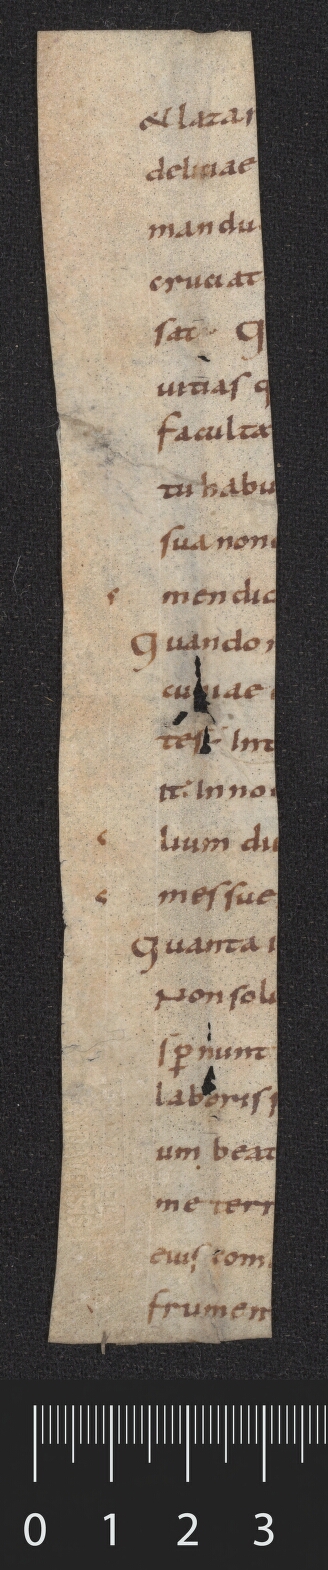 & lazar
delitiae
mandu
cruciat
sat· Q
uitias q
faculta
tu habu
sua non
mendic
Quando
test Int
tt. In no
lium du
mes sue
Quanta
Non solu
sp̄nunt
laboris
um beat
me terr
eius com
frumen
0 1 2 3